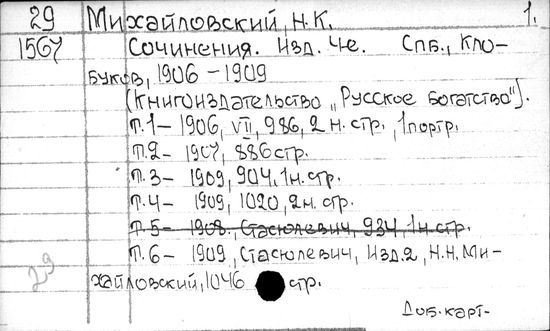 29 Михайловский, Н.К. 1.
1567 Сочинения. Изд. 4-е. Спб., Кло-
буков, 1906 - 1909
(Книгоиздательство „Русское богатство").
Т.1 - 1906, VII, 986, 2 н. стр., 1 портр.
Т.2 - 1907, 886 стр.
Т.3 - 1909, 904, 1 н. стр.
Т.4 - 1909, 1020, 2 н. стр.
Т.5 - 1908, Стасюлевич, 934, 1 н. стр.
Т.6 - 1909, Стасюлевич, Изд. 2, Н.Н. Ми-
хайловский, 1046 стр.
29
Доб. карт-